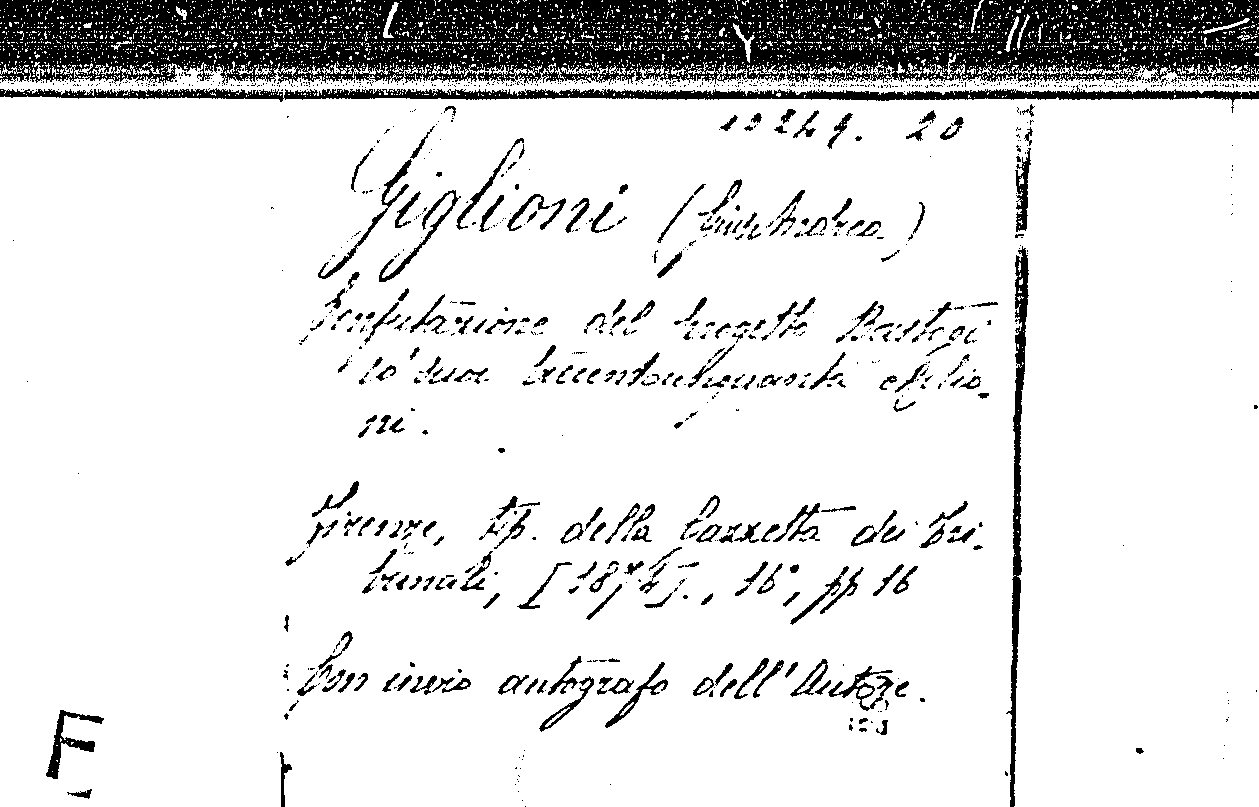 10249. 20
Giglioni (Giov. Andrea)
Confutazione del progetto Bastogi
co' suoi trecentocinquanta Milio-
ni.
Firenze, tip. della Gazzetta dei Tri-
bunali, [1874]., 16°, pp 16
Con invio autografo dell'Autore.
F